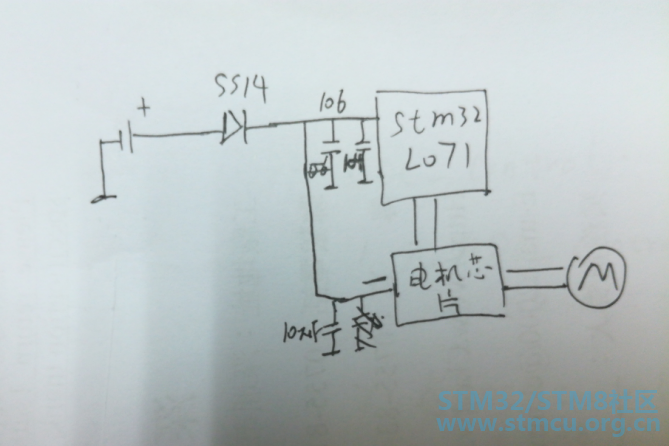 SS14
+
106
Stm32
L071
电机芯
片
M
10uF
STM32/STM8社区
www.stmcu.org.cn